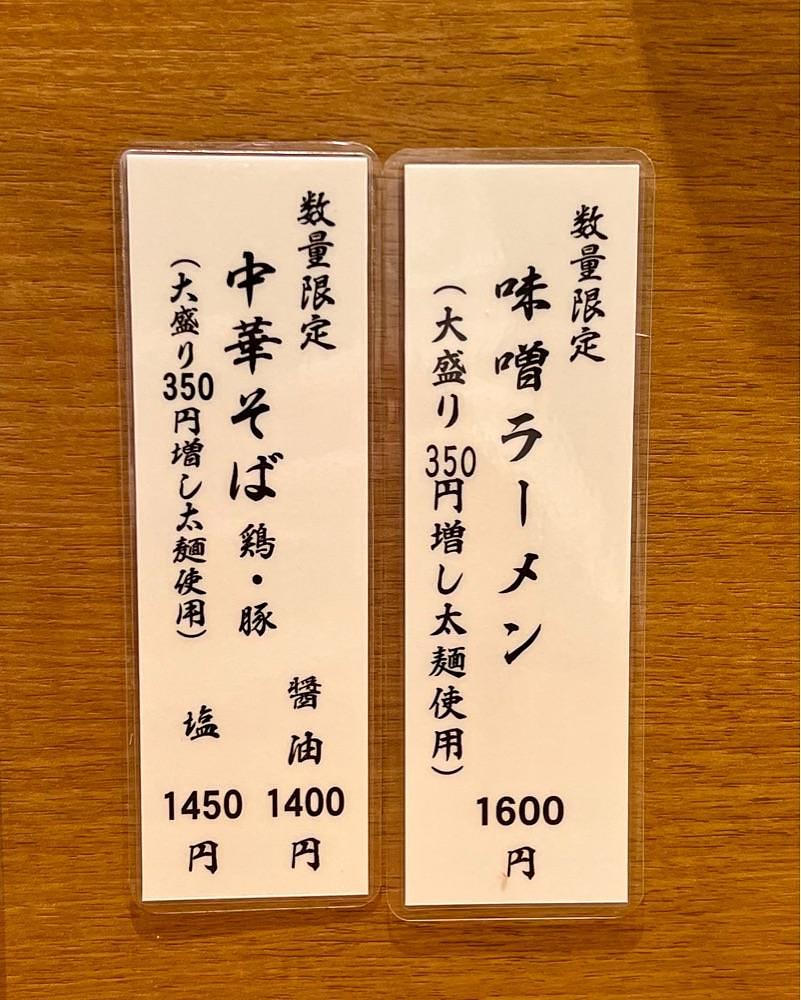 数量限定
味噌ラーメン
（大盛り350円増し太麺使用）
1600円
数量限定
中華そば 鶏・豚
（大盛り350円増し太麺使用）
醤油 1400円
塩 1450円